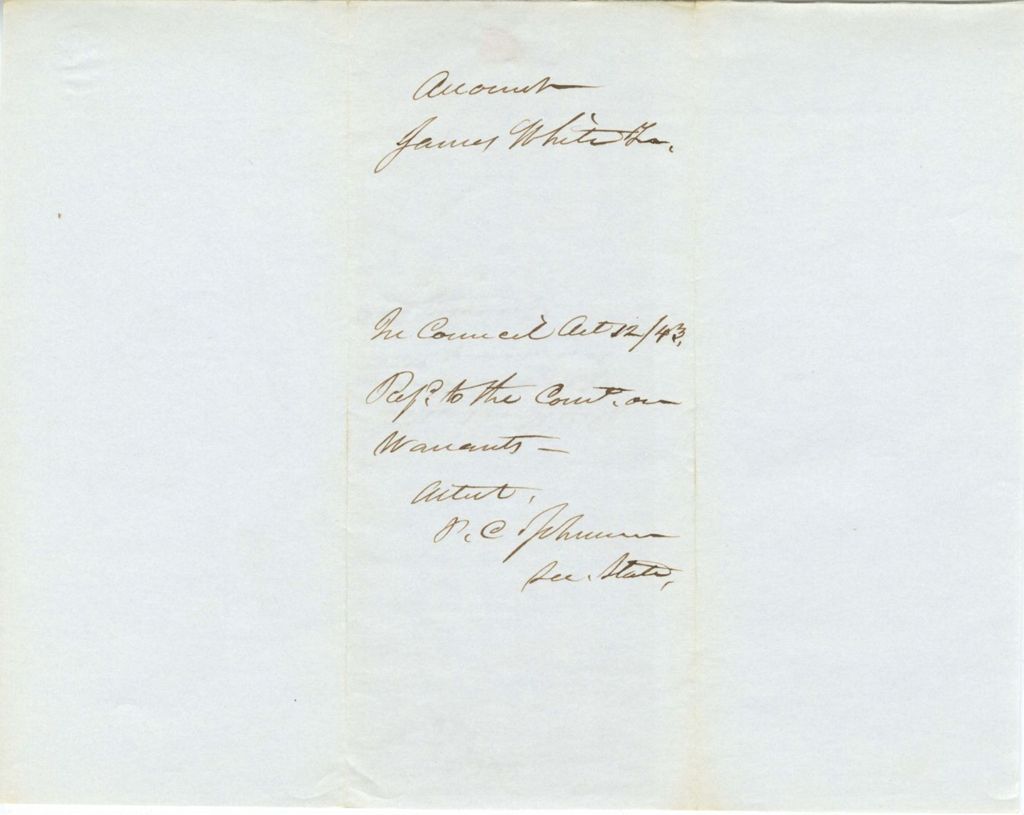 Account
James White Tr.
In Council Oct 12/43.
Refd. to the Comte. on
Warrants —
Attest,
P. C. Johnson
Sec. State,